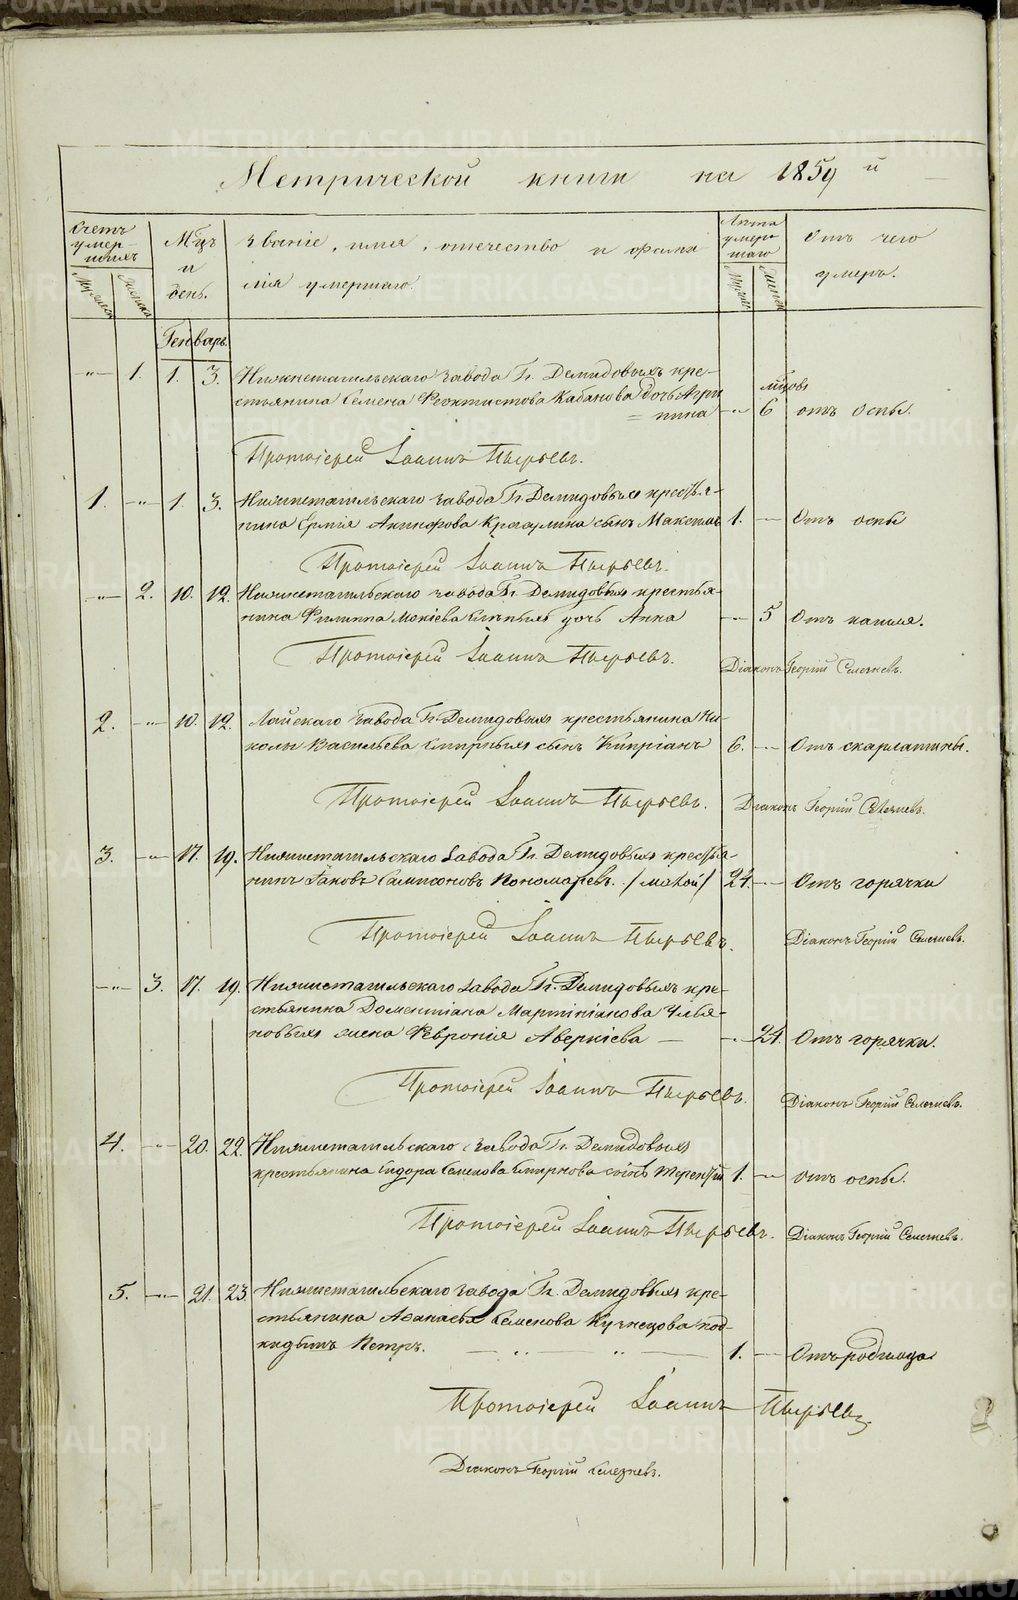 Метрической книги на 1859й
Счетъ умершихъ
Мужеска
Женска
Мцъ и день.
Званіе, имя, отечество и фами
лія умершаго.
Лѣта умершаго
Мужеска
Женска
Отъ чего умеръ.
Генварь.
-"- 1. 1. 3. Нижнетагильскаго завода Гг. Демидовыхъ кре-
стьянина Семена Феоктистова Кабанова дочь Агри
= пина -"- 6 мцовъ отъ оспы.
Протоіерей Іоаннъ Пырьевъ.
1. -"- 1. 3. Нижнетагильскаго завода Гг. Демидовыхъ крестья-
нина Ермія Акинфова сынъ Максимъ 1. — Отъ оспы
Протоіерей Іоаннъ Пырьевъ.
-"- 2. 10. 12. Нижнетагильскаго завода Гг. Демидовыхъ крестья-
нина Филиппа Мокіева Слѣпыхъ дочь Анна -"- 5 Отъ кашля.
Протоіерей Іоаннъ Пырьевъ. Діаконъ Георгій Селезневъ.
2. -"- 10. 12. Лайскаго завода Гг. Демидовыхъ крестьянина Ни-
колы Васильева Смирныхъ сынъ Кипріанъ 6. — Отъ скарлатины.
Протоіерей Іоаннъ Пырьевъ. Діаконъ Георгій Селезневъ.
3. -"- 17. 19. Нижнетагильскаго завода Гг. Демидовыхъ крестья-
нинъ Іаковъ Самсоновъ Пономаревъ. 24. — Отъ горячки
Протоіерей Іоаннъ Пырьевъ. Діаконъ Георгій Селезневъ.
-"- 3. 17. 19. Нижнетагильскаго завода Гг. Демидовыхъ кре-
стьянина Доментіана Мартиніанова Улья-
новыхъ жена Февронія Аверкіева — -"- 24. Отъ горячки.
Протоіерей Іоаннъ Пырьевъ. Діаконъ Георгій Селезневъ.
4. -"- 20. 22. Нижнетагильскаго завода Гг. Демидовыхъ
крестьянина Сидора Семенова Смирнова сынъ Терентій 1. -"- отъ оспы.
Протоіерей Іоаннъ Пырьевъ. Діаконъ Георгій Селезневъ.
5. -"- 21. 23. Нижнетагильскаго завода Гг. Демидовыхъ кре-
стьянина Аѳанасья Семенова Кузнецова под-
кидышъ Петръ. — " — " — 1. — Отъ родимца
Протоіерей Іоаннъ Пырьевъ
Діаконъ Георгій Селезневъ.
METRIKI.GASO-URAL.RU